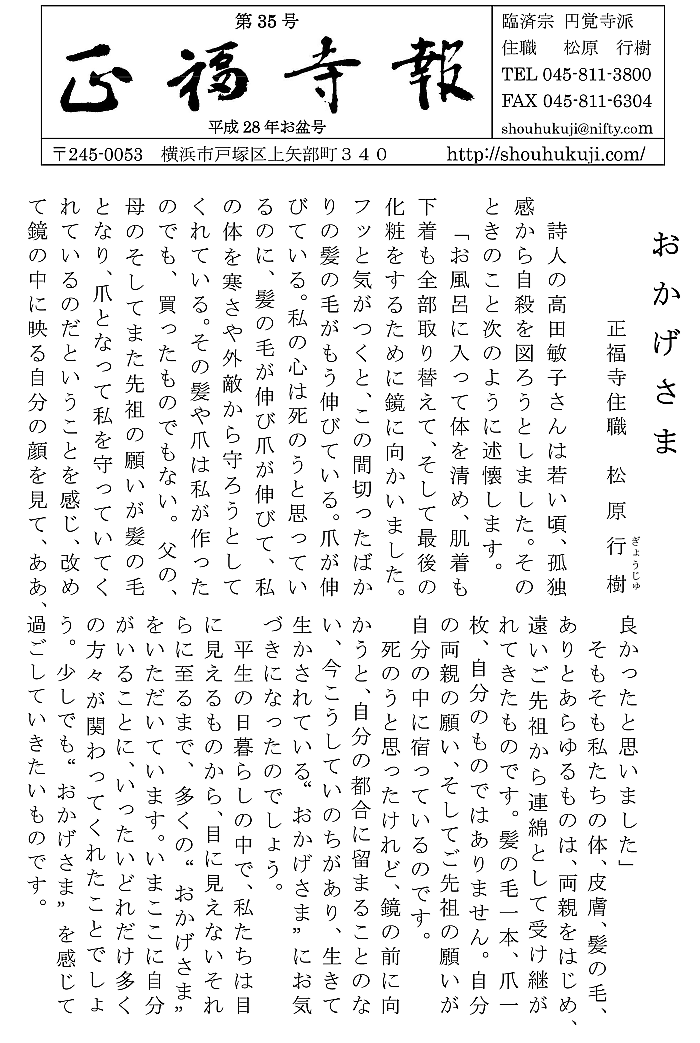 第35号
正福寺報
平成28年お盆号
臨済宗 円覚寺派
住職 松原 行樹
TEL 045-811-3800
FAX 045-811-6304
shouhukuji@nifty.com
〒245-0053 横浜市戸塚区上矢部町340 http://shouhukuji.com/
おかげさま
正福寺住職 松原行樹
ぎょうじゅ
詩人の高田敏子さんは若い頃、孤独
感から自殺を図ろうとしました。その
ときのこと次のように述懐します。
「お風呂に入って体を清め、肌着も
下着も全部取り替えて、そして最後の
化粧をするために鏡に向かいました。
フッと気がつくと、この間切ったばか
りの髪の毛がもう伸びている。爪が伸
びている。私の心は死のうと思ってい
るのに、髪の毛が伸び爪が伸びて、私
の体を寒さや外敵から守ろうとして
くれている。その髪や爪は私が作った
のでも、買ったものでもない。父の、
母のそしてまた先祖の願いが髪の毛
となり、爪となって私を守っていてく
れているのだということを感じ、改め
て鏡の中に映る自分の顔を見て、ああ、
良かったと思いました」
そもそも私たちの体、皮膚、髪の毛、
ありとあらゆるものは、両親をはじめ、
遠いご先祖から連綿として受け継が
れてきたものです。髪の毛一本、爪一
枚、自分のものではありません。自分
の両親の願い、そしてご先祖の願いが
自分の中に宿っているのです。
死のうと思ったけれど、鏡の前に向
かうと、自分の都合に留まることのな
い、今こうしていのちがあり、生きて
生かされている“おかげさま”にお気
づきになったのでしょう。
平生の日暮らしの中で、私たちは目
に見えるものから、目に見えないそれ
らに至るまで、多くの“おかげさま”
をいただいています。いまここに自分
がいることに、いったいどれだけ多く
の方々が関わってくれたことでしょ
う。少しでも“おかげさま”を感じて
過ごしていきたいものです。